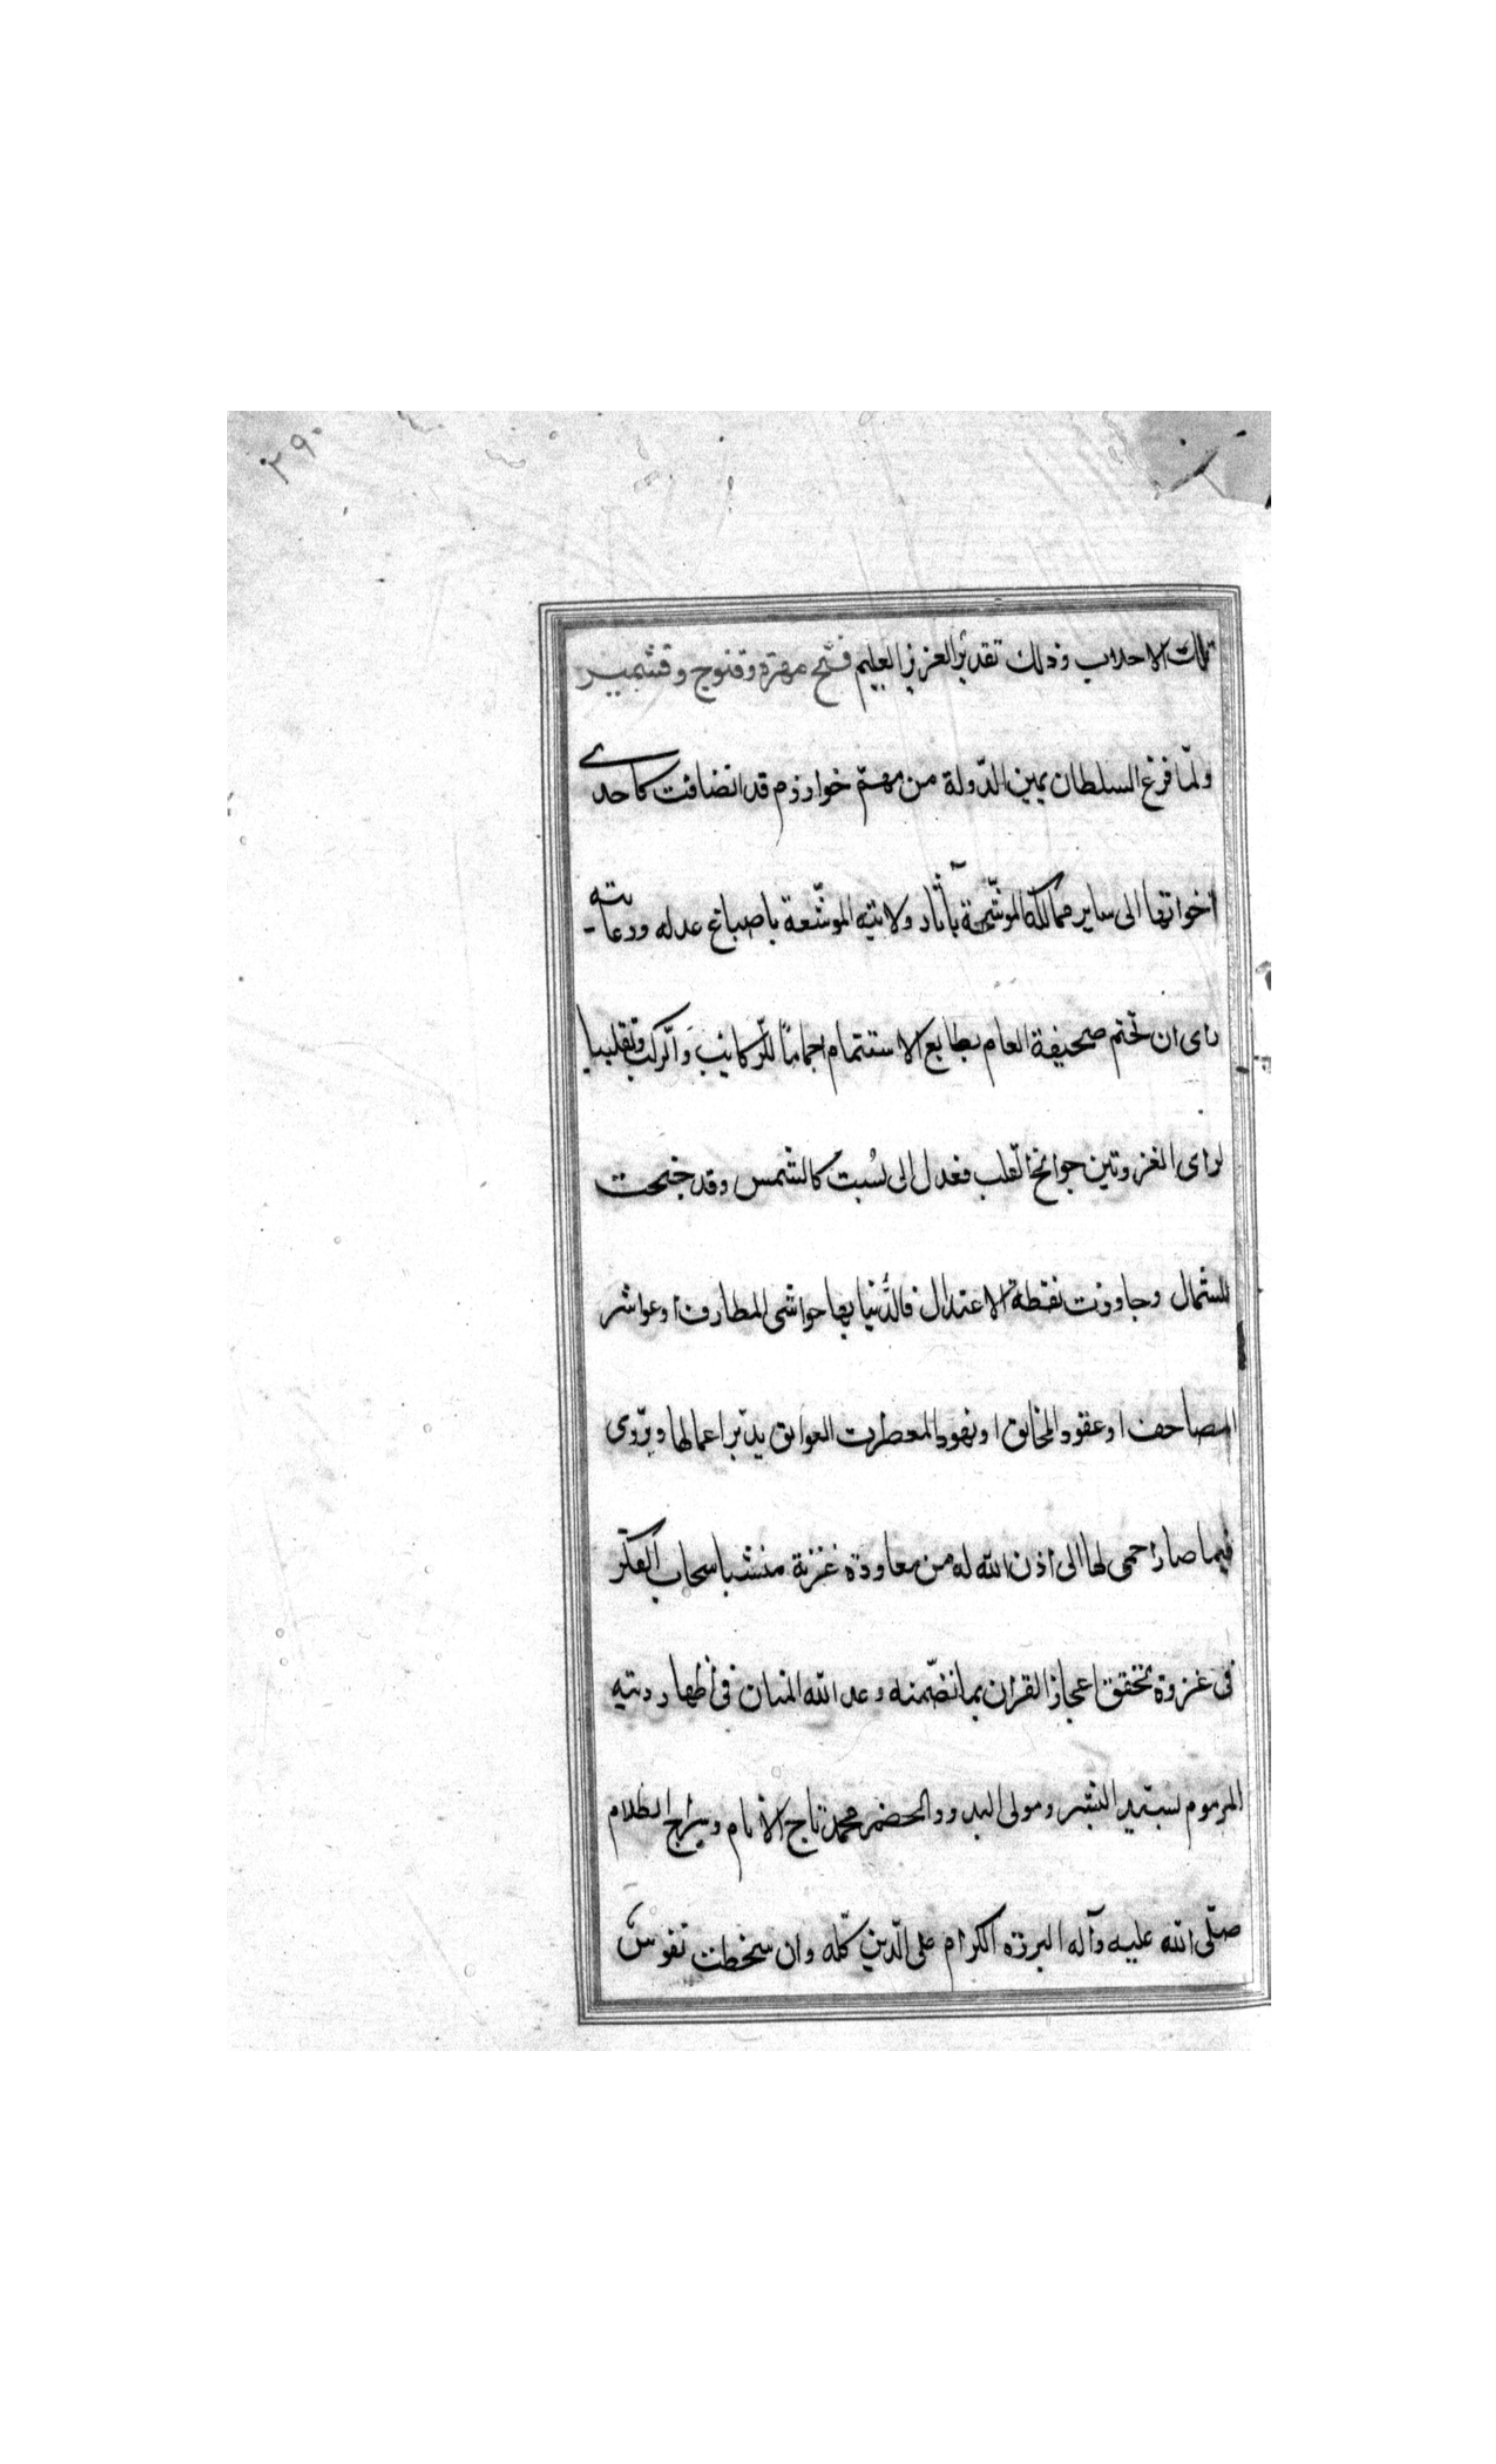 ٢٩٠
تلك الاحلاب وذلك تقدير العزيز العليم فتح مهرة وقنوج وقشمير
ولمّا فرغ السلطان يمين الدّولة من مهمّ خوارزم قد انضافت كاحدى
اخواتها الى ساير ممالكه الموشّحة بآثار ولايته الموشّعة باصباغ عدله ورعايته
راى ان تختم صحيفة العام بطابع الاستتمام اجماماً للرّكايب وَالرّكب وتقليبا
لراى الغزو بين جوانح القلب فعدل الى بُست كالشمس وقد جنحت
للشمال وجاوزت نقطة الاعتدال فالدّنيا بها حواشى المطارف او عواشر
المصاحف او عقود المخانق او نهود المعطرت العواتق يدبّر اعمالها ويروّى
فيما صار احمى لها الى اذن الله له من معاودة غزنة منشبا سحاب الفكر
فى غزوة تحقق اعجاز القران بما تضّمنه وعد الله المنان فى اظهار دينه
المرموم بسيد البشر ومولى البدو والحضر محمد تاج الانام وسراج الظلام
صلّى الله عليه وآله البررة الكرام على الدّين كلّه وان سخطت نفوس